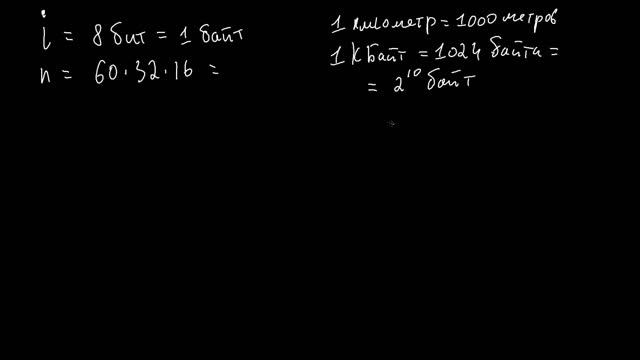 i = 8 бит = 1 байт
n = 60·32·16 =
1 километр = 1000 метров
1 КБайт = 1024 байта =
= 2¹⁰ байт